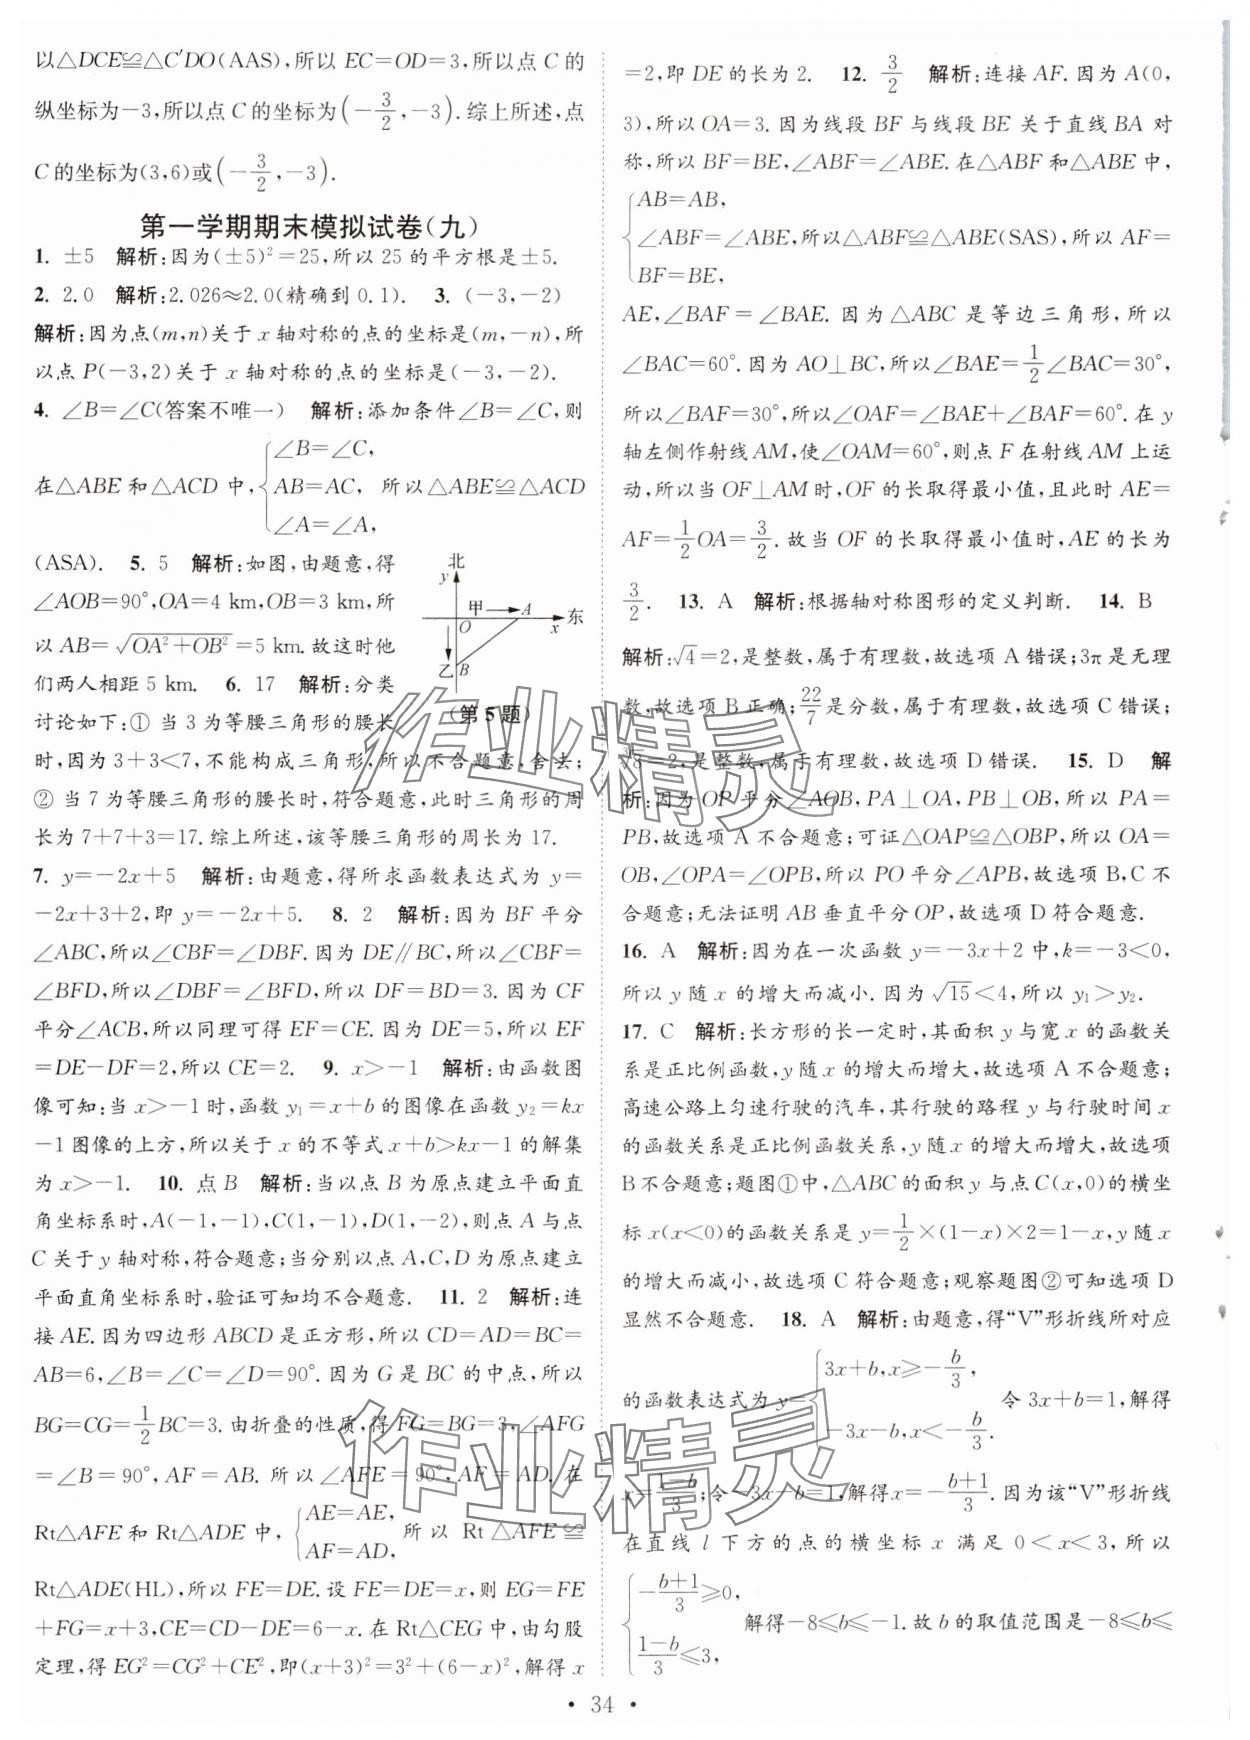 以△DCE≌△C′DO(AAS),所以 EC=OD=3,所以点 C 的
纵坐标为-3,所以点 C 的坐标为(-3/2,-3).综上所述,点
C 的坐标为(3,6)或(-3/2,-3).
第一学期期末模拟试卷(九)
1. ±5 解析:因为(±5)²=25,所以 25 的平方根是±5.
2. 2.0 解析:2.026≈2.0(精确到 0.1). 3. (-3,-2)
解析:因为点(m,n)关于 x 轴对称的点的坐标是(m,-n),所
以点 P(-3,2)关于 x 轴对称的点的坐标是(-3,-2).
4. ∠B=∠C(答案不唯一) 解析:添加条件∠B=∠C,则
在△ABE 和△ACD 中,{∠B=∠C, AB=AC, ∠A=∠A, 所以△ABE≌△ACD
(ASA). 5. 5 解析:如图,由题意,得
∠AOB=90°,OA=4 km,OB=3 km,所
以 AB=√(OA²+OB²)=5 km.故这时他
们两人相距 5 km. 6. 17 解析:分类
讨论如下:① 当 3 为等腰三角形的腰长
北
y
甲 A 东
O x
乙 B
(第 5 题)
时,因为 3+3<7,不能构成三角形,所以不合题意,舍去;
② 当 7 为等腰三角形的腰长时,符合题意,此时三角形的周
长为 7+7+3=17.综上所述,该等腰三角形的周长为 17.
7. y=-2x+5 解析:由题意,得所求函数表达式为 y=
-2x+3+2,即 y=-2x+5. 8. 2 解析:因为 BF 平分
∠ABC,所以∠CBF=∠DBF.因为 DE∥BC,所以∠CBF=
∠BFD,所以∠DBF=∠BFD,所以 DF=BD=3.因为 CF
平分∠ACB,所以同理可得 EF=CE.因为 DE=5,所以 EF
=DE-DF=2,所以 CE=2. 9. x>-1 解析:由函数图
像可知:当 x>-1 时,函数 y₁=x+b 的图像在函数 y₂=kx
-1 图像的上方,所以关于 x 的不等式 x+b>kx-1 的解集
为 x>-1. 10. 点 B 解析:当以点 B 为原点建立平面直
角坐标系时,A(-1,-1),C(1,-1),D(1,-2),则点 A 与点
C 关于 y 轴对称,符合题意;当分别以点 A,C,D 为原点建立
平面直角坐标系时,验证可知均不合题意. 11. 2 解析:连
接 AE.因为四边形 ABCD 是正方形,所以 CD=AD=BC=
AB=6,∠B=∠C=∠D=90°.因为 G 是 BC 的中点,所以
BG=CG=1/2BC=3.由折叠的性质,得 FG=BG=3,∠AFG
=∠B=90°,AF=AB.所以∠AFE=90°,AF=AD.在
Rt△AFE 和 Rt△ADE 中,{AE=AE, AF=AD, 所以 Rt△AFE≌
Rt△ADE(HL),所以 FE=DE.设 FE=DE=x,则 EG=FE
+FG=x+3,CE=CD-DE=6-x.在 Rt△CEG 中,由勾股
定理,得 EG²=CG²+CE²,即(x+3)²=3²+(6-x)²,解得 x
=2,即 DE 的长为 2. 12. 3/2 解析:连接 AF.因为 A(0,
3),所以 OA=3.因为线段 BF 与线段 BE 关于直线 BA 对
称,所以 BF=BE,∠ABF=∠ABE.在△ABF 和△ABE 中,
{AB=AB, ∠ABF=∠ABE, BF=BE, 所以△ABF≌△ABE(SAS),所以 AF=
AE,∠BAF=∠BAE.因为△ABC 是等边三角形,所以
∠BAC=60°.因为 AO⊥BC,所以∠BAE=1/2∠BAC=30°,
所以∠BAF=30°,所以∠OAF=∠BAE+∠BAF=60°.在 y
轴左侧作射线 AM,使∠OAM=60°,则点 F 在射线 AM 上运
动,所以当 OF⊥AM 时,OF 的长取得最小值,且此时 AE=
AF=1/2OA=3/2.故当 OF 的长取得最小值时,AE 的长为
3/2. 13. A 解析:根据轴对称图形的定义判断. 14. B
解析:√4=2,是整数,属于有理数,故选项 A 错误;3π是无理
数,故选项 B 正确;22/7是分数,属于有理数,故选项 C 错误;
³√8=2,是整数,属于有理数,故选项 D 错误. 15. D 解
析:因为 OP 平分∠AOB,PA⊥OA,PB⊥OB,所以 PA=
PB,故选项 A 不合题意;可证△OAP≌△OBP,所以 OA=
OB,∠OPA=∠OPB,所以 PO 平分∠APB,故选项 B,C 不
合题意;无法证明 AB 垂直平分 OP,故选项 D 符合题意.
16. A 解析:因为在一次函数 y=-3x+2 中,k=-3<0,
所以 y 随 x 的增大而减小.因为√15<4,所以 y₁>y₂.
17. C 解析:长方形的长一定时,其面积 y 与宽 x 的函数关
系是正比例函数,y 随 x 的增大而增大,故选项 A 不合题意;
高速公路上匀速行驶的汽车,其行驶的路程 y 与行驶时间 x
的函数关系是正比例函数关系,y 随 x 的增大而增大,故选项
B 不合题意;题图①中,△ABC 的面积 y 与点 C(x,0)的横坐
标 x(x<0)的函数关系是 y=1/2×(1-x)×2=1-x,y 随 x
的增大而减小,故选项 C 符合题意;观察题图②可知选项 D
显然不合题意. 18. A 解析:由题意,得“V”形折线所对应
的函数表达式为 y={3x+b,x≥-b/3, -3x-b,x<-b/3. 令 3x+b=1,解得
x=(1-b)/3;令-3x-b=1,解得 x=-(b+1)/3.因为该“V”形折线
在直线 l 下方的点的横坐标 x 满足 0<x<3,所以
{-(b+1)/3≥0, (1-b)/3≤3, 解得-8≤b≤-1.故 b 的取值范围是-8≤b≤
• 34 •
作业精灵
作业精灵